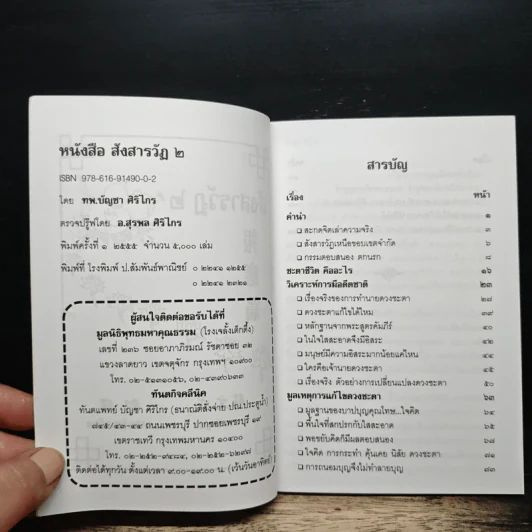 หนังสือ สังสารวัฏ ๒
ISBN 978-616-91490-0-2
โดย ทพ.บัญชา ศิริไกร
ตรวจปรู๊ฟโดย อ.สุรพล ศิริไกร
พิมพ์ครั้งที่ ๑ ๒๕๕๕ จำนวน ๕,๐๐๐ เล่ม
พิมพ์ที่ โรงพิมพ์ ป.สัมพันธ์พาณิชย์ ๐ ๒๒๔๑ ๑๒๕๕
๐ ๒๒๔๑ ๒๓๒๑
ผู้สนใจติดต่อขอรับได้ที่
มูลนิธิพุทธมหาคุณธรรม (โรงเจลั้งเต็กตึ้ง)
เลขที่ ๒๓๖ ซอยอาภาภิรมณ์ รัชดาซอย ๓๒
แขวงลาดยาว เขตจตุจักร กรุงเทพฯ ๑๐๙๐๐
โทร. ๐๒-๕๑๓๑๐๕๖, ๐๒-๔๓๙๐๖๓๓
ทันตกิจคลีนิค
ทันตแพทย์ บัญชา ศิริไกร (ธนาณัติสั่งจ่าย ปณ.ประตูน้ำ)
๗๔๕/๔๓-๔๔ ถนนเพชรบุรี ปากซอยเพชรบุรี ๑๙
เขตราชเทวี กรุงเทพมหานคร ๑๐๔๐๐
โทร. ๐๒-๒๕๒-๙๔๘๔, ๐๒-๒๕๒-๖๒๙๗
ติดต่อได้ทุกวัน ตั้งแต่เวลา ๙.๐๐-๑๙.๐๐ น. (เว้นวันอาทิตย์)
สารบัญ
เรื่อง หน้า
คำนำ ๑
❑ สะกดจิตเล่าความจริง ๓
❑ สังสารวัฏเหนือขอบเขตจำกัด ๖
❑ กรรมตอบสนอง ตกนรก ๘
ชะตาชีวิต คืออะไร ๑๖
วิเคราะห์การมีอดีตชาติ ๒๓
❑ เรื่องจริงของการทำนายดวงชะตา ๓๐
❑ ดวงชะตาแก้ไขได้ไหม ๓๙
❑ หลักฐานจากพระสูตรคัมภีร์ ๔๐
❑ ในใจใสสะอาดจึงมีอิสระ ๔๑
❑ มนุษย์มีความอิสระมากน้อยแค่ไหน ๔๓
❑ ใครคือเจ้านายดวงชะตา ๔๕
❑ เรื่องจริง ตัวอย่างการเปลี่ยนแปลงดวงชะตา ๕๐
มูลเหตุการแก้ไขดวงชะตา ๖๓
❑ มูลฐานของบาปบุญคุณโทษ...ใจคิด ๖๔
❑ พื้นใจที่สกปรกกับใสสะอาด ๖๘
❑ พอขยับคิดก็มีผลตอบสนอง ๖๙
❑ ใจคิด การกระทำ คุ้นเคย นิสัย ดวงชะตา ๗๑
❑ การถนอมบุญจึงไม่ทำลายบุญ ๘๓